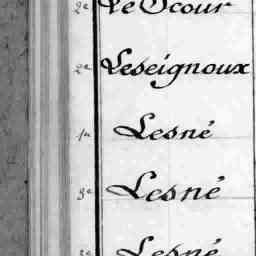 2e Le Scour
2e Leseignoux
1re Lesné
3e Lesné
3e Lesné